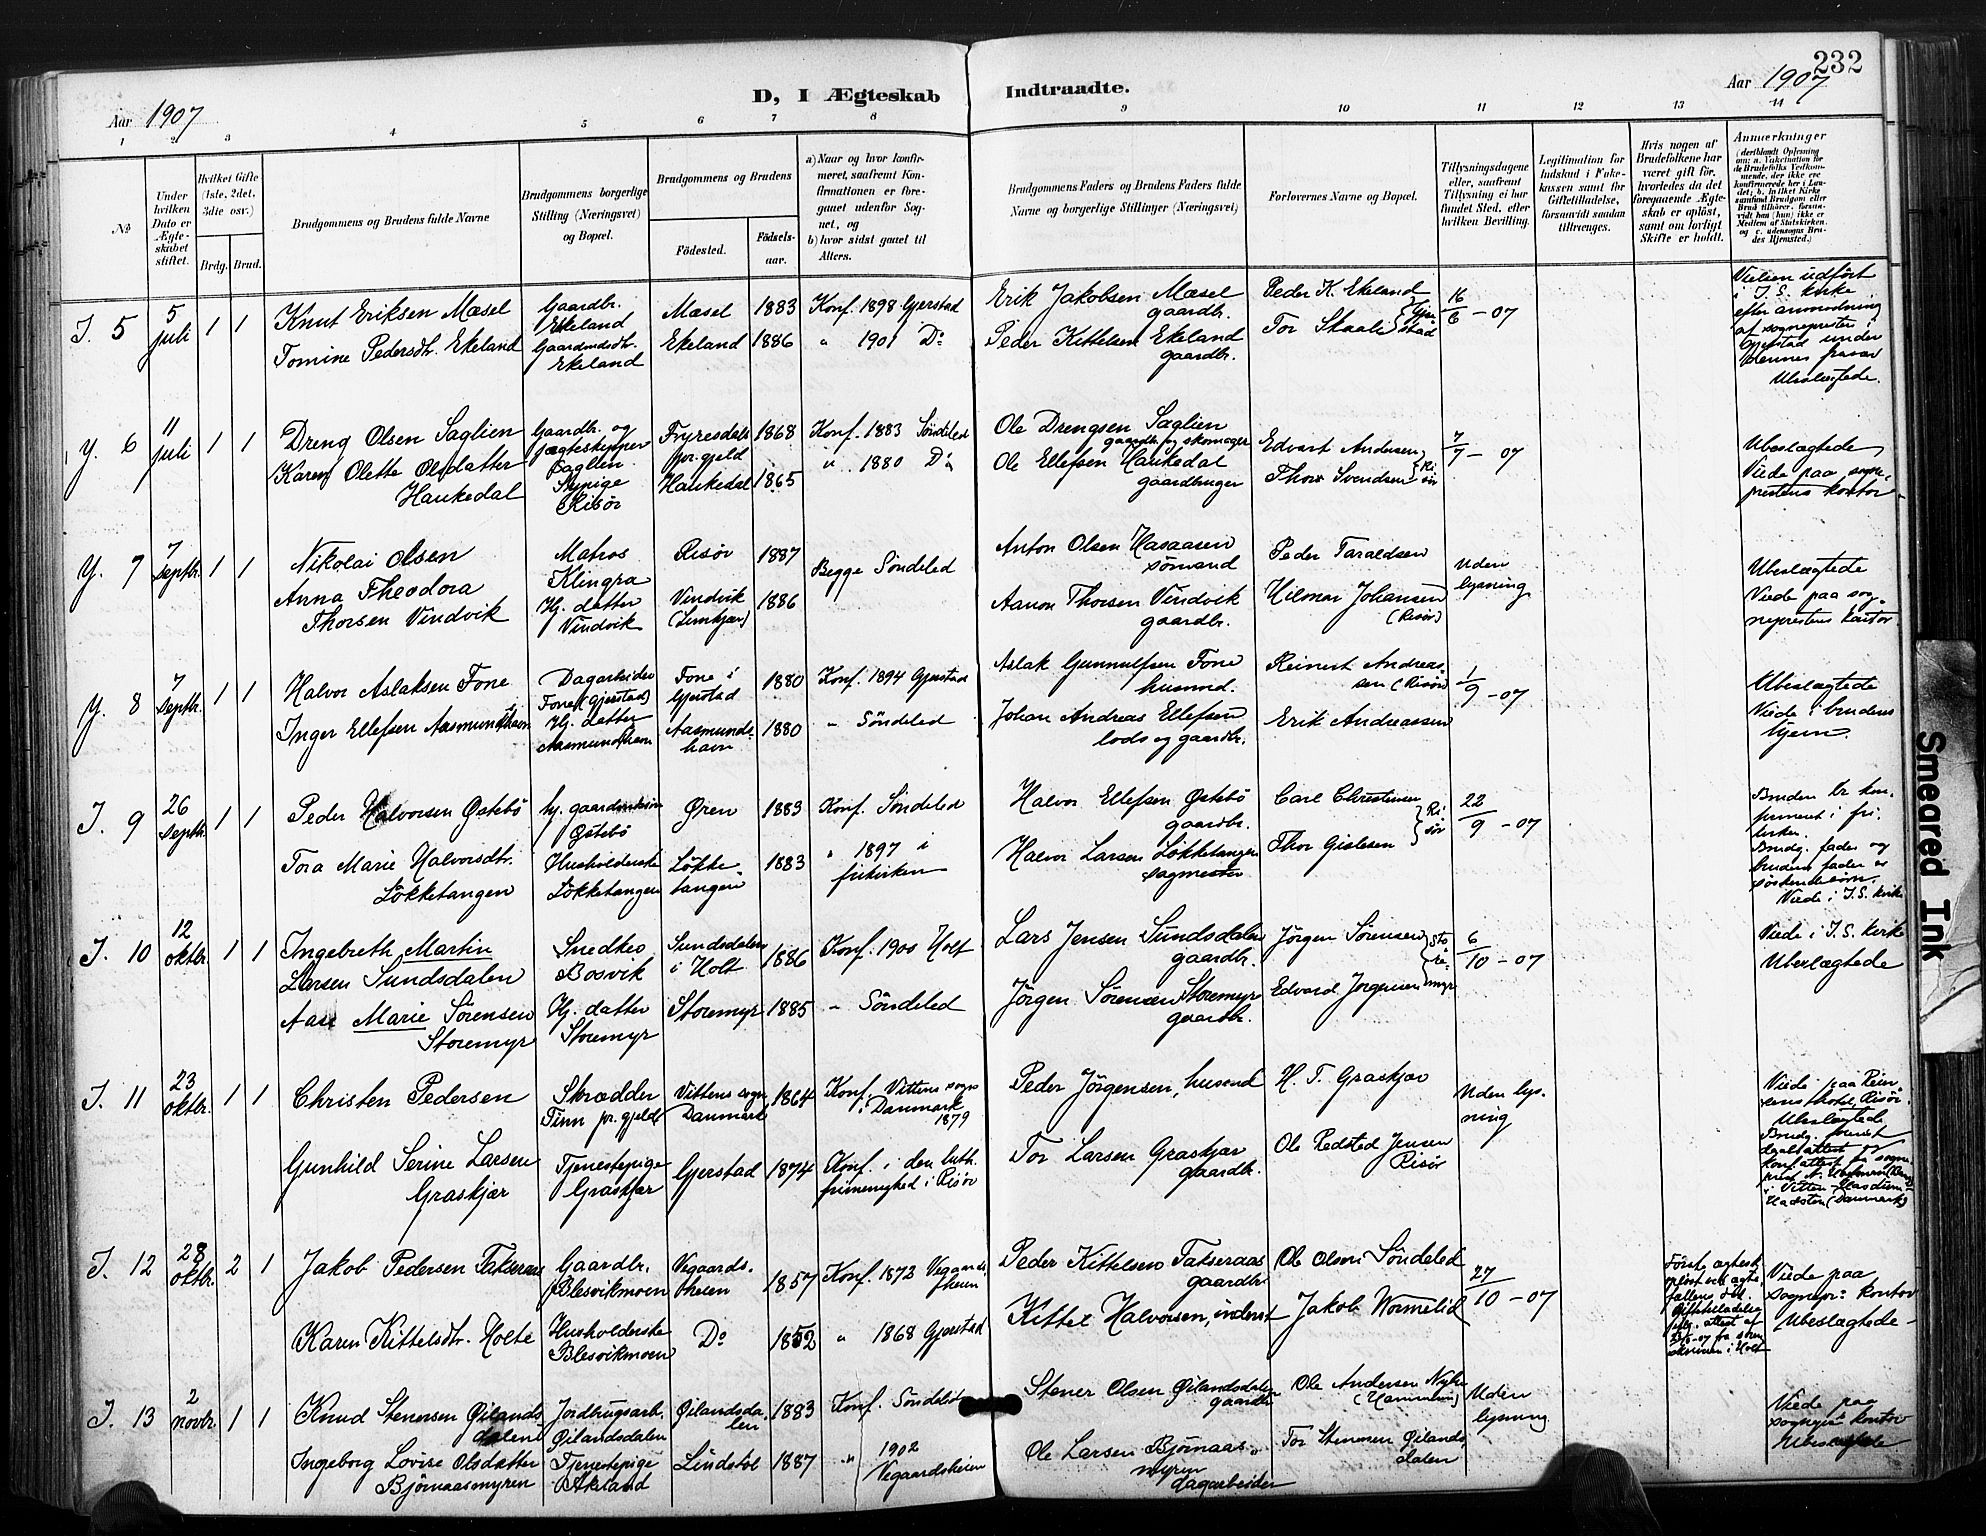 232
Aar 1907
D, I Ægteskab Indtraadte.
Aar 1907
1 2 3 4 5 6 7 8 9 10 11 12 13 14
No
Under hvilken Dato er Ægteskabet stiftet.
Hvilket Gifte (1ste, 2det, 3die osv.)
Brdg. Brud.
Brudgommens og Brudens fulde Navne
Brudgommens borgerlige Stilling (Næringsvei) og Bopæl.
Brudgommens og Brudens
Fødested.
Fødselsaar.
a) Naar og hvor konfirmeret, saafremt Konfirmationen er foregaaet udenfor Sognet, og
b) hvor sidst gaaet til Alters.
Brudgommens Faders og Brudens Faders fulde Navne og borgerlige Stillinger (Næringsvei)
Forlovernes Navne og Bopæl.
Tillysningsdagene eller, saafremt Tillysning ei har fundet Sted, efter hvilken Bevilling.
Legitimation for Indskud i Enkekassen samt for Giftetilladelse, forsaavidt saadan tiltrænges.
Hvis nogen af Brudefolkene har været gift før, hvorledes da det foregaaende Ægteskab er opløst, samt om lovligt Skifte er holdt.
Anmerkninger
I. 5
5 juli
1 1
Knut Eriksen Mæsel
Tomine Pedersdtr. Ekeland
Gaardbr. Ekeland
Gaardmdsdtr. Ekeland
Mæsel 1883
Ekeland 1886
Konf. 1898 Gjerstad
" 1901 Do
Erik Jakobsen Mæsel gaardbr.
Peder Kittelsen Ekeland gaardbr.
Peder K. Ekeland
Tor Skaali
Gjerstad
16/6 - 07
Vielsen udført i I. S. kirke efter anmodning af sognepresten i Gjerstad under hennes fravær
Ubeslægtede.
Y. 6
11 juli
1 1
Dreng Olsen Saglien
Karen Olette Olsdatter Haukedal
Gaardbr. og jægteskipper Saglien
Sypige Risør
Fyresdals pr.gjeld 1868
Haukedal 1865
Konf. 1883 Søndeled
" 1880 Do
Ole Drengsen Saglien gaardbr. og skomager
Ole Ellefsen Haukedal gaardbruger
Edvart Andersen
Thor Svendsen
Risør
7/7 - 07
Ubeslægtede
Viede paa sogneprestens kontor
Y. 7
7 Septbr.
1 1
Nikolai Olsen
Anna Theodora Thorsen Vindvik
Matros Klingra
Hj. datter Vindvik
Risør 1887
Vindvik 1886
Begge Søndeled
Anton Olsen Hasaasen sømand
Aanon Thorsen Vindvik gaardbr.
Peder Taraldsen
Hilmar Johansen (Risør)
Uden lysning
Ubeslægtede
Viede paa sogneprestens kontor
Y. 8
7 Septbr.
1 1
Halvor Aslaksen Fone
Inger Ellefsen Aasmundshavn
Dagarbeider Fone (Gjerstad)
Hj. datter Aasmundshavn
Fone i Gjerstad 1880
Aasmundshavn 1880
Konf. 1894 Gjerstad
" Søndeled
Aslak Gunnulfsen Fone husmd.
Johan Andreas Ellefsen lods og gaardbr.
Reinert Andreassen (Risør)
Erik Andreassen
1/9 - 07
Ubeslægtede
Viede i brudens hjem.
I. 9
26 Septbr.
1 1
Peder Halvorsen Østebø
Tora Marie Halvorsdtr. Løkketangen
hj. gaardmdssøn Østebø
Husholderske Løkketangen
Øren 1883
Løkketangen 1883
Konf. Søndeled
" 1897 i frikirken
Halvor Ellefsen Østebø gaardbr.
Halvor Larsen Løkketangen sagmester
Carl Christensen
Thor Gislesen
Risør
22/9 - 07
Bruden er konfirmeret i frikirken.
Brudg. fader og brudens fader er søskendebørn.
Viede i I. S. kirke
I. 10
12 oktbr.
1 1
Ingebreth Martin Larsen Sundsdalen
Aase Marie Sørensen Storemyr
Snedker Bosvik
Hj. datter Storemyr
Sundsdalen i Holt 1886
Storemyr 1885
Konf. 1900 Holt
" Søndeled
Lars Jensen Sundsdalen gaardbr.
Jørgen Sørensen Storemyr gaardbr.
Jørgen Sørensen
Edvard Jørgensen
Storemyr
6/10 - 07
Viede i I. S. kirke
Ubeslægtede
I. 11
23 oktbr.
1 1
Christen Pedersen
Gunhild Serine Larsen Graskjær
Skrædder Finn pr.gjeld
Tjenestepige Graskjær
Vittens sogn Danmark 1864
Gjerstad 1874
Konf. Vittens sogn i Danmark 1879
Konf. i den luth. frimenighed i Risør
Peder Jörgensen, husmd
Tor Larsen Graskjær gaardbr.
H. T. Graskjær
Ole Redsted Jensen Risør
Uden lysning
Viede paa Reiersens hotel, Risør.
Ubeslægtede
I. 12
28 oktbr.
2 1
Jakob Pedersen Takseraas
Karen Kittelsdtr. Holte
Gaardbr. Blesvikmoen
Husholderske Blesvikmoen
Vegaardsheien 1857
Do 1852
Konf. 1873 Vegaardsheien
" 1868 Gjerstad
Peder Kittelsen Takseraas gaardbr
Kittel Halvorsen, inderst
Ole Olsen Søndeled
Jakob Wormelid
27/10 - 07
Viede paa sognepr. kontor
Ubeslægtede
I. 13
2 novbr.
1 1
Knud Stenersen Øilandsdalen
Ingeborg Lovise Olsdatter Bjørnaasmyren
Jordbrugsarb. Øilandsdalen
Tjenestepige Akeland
Øilandsdalen 1883
Lindstøl 1887
Konf. Søndeled
" 1902 Vegaardsheien
Stener Olsen Øilandsdalen gaardbr
Ole Larsen Bjørnaasmyren dagarbeider
Ole Andersen
Tor Stenersen Øilandsdalen
Uden lysning
Viede paa sognepr. kontor
Ubeslægtede
Smeared Ink